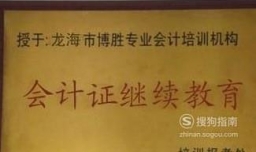 授于:龙海市博胜专业会计培训机构
会计证继续教育
搜狗指南
zhinan.sogou.com
培训报考处